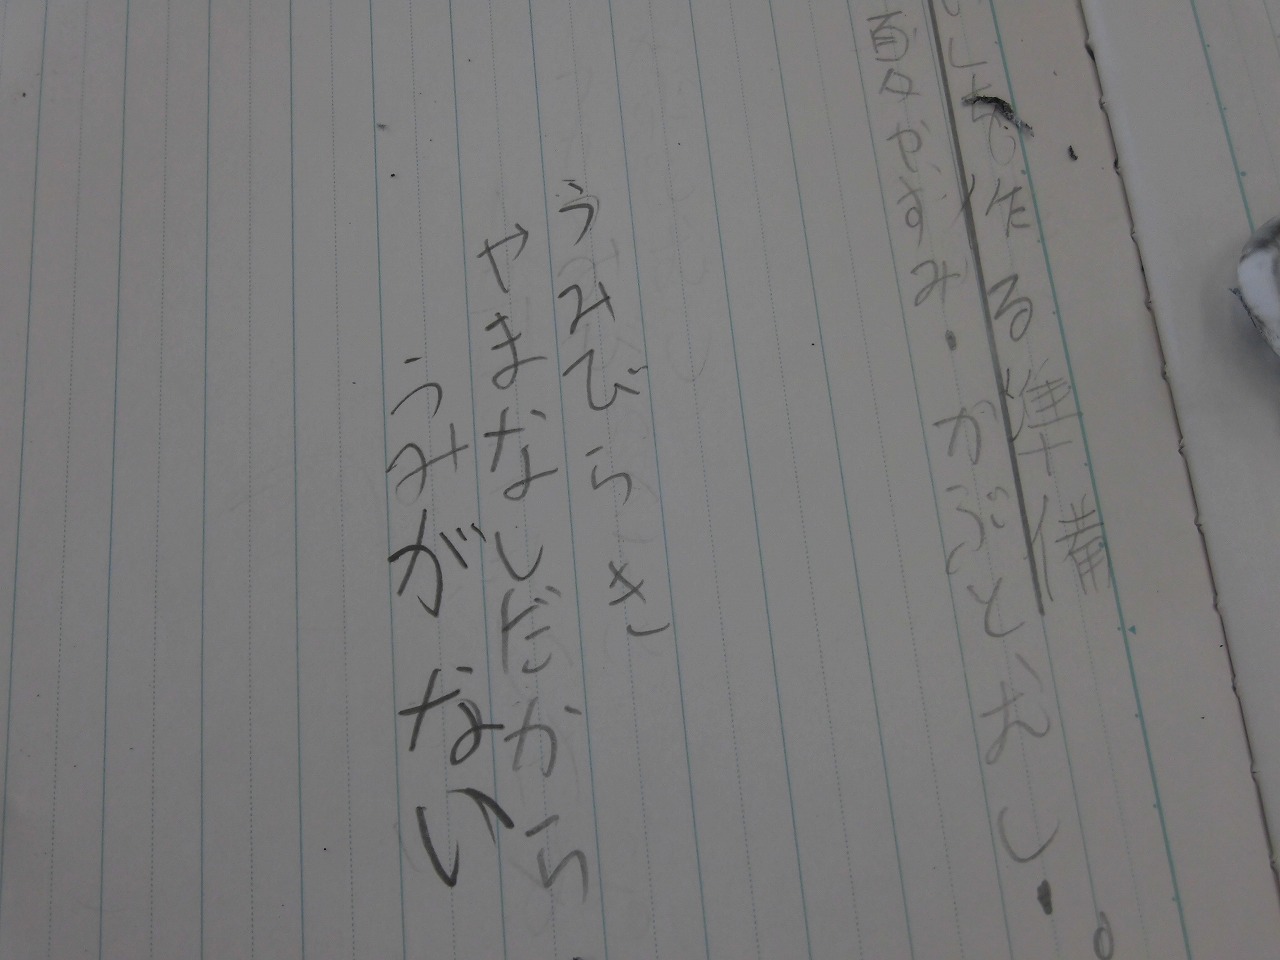 を作る準備
夏やすみ・かぶとむし・
うみびらき
やまなしだから
うみがない